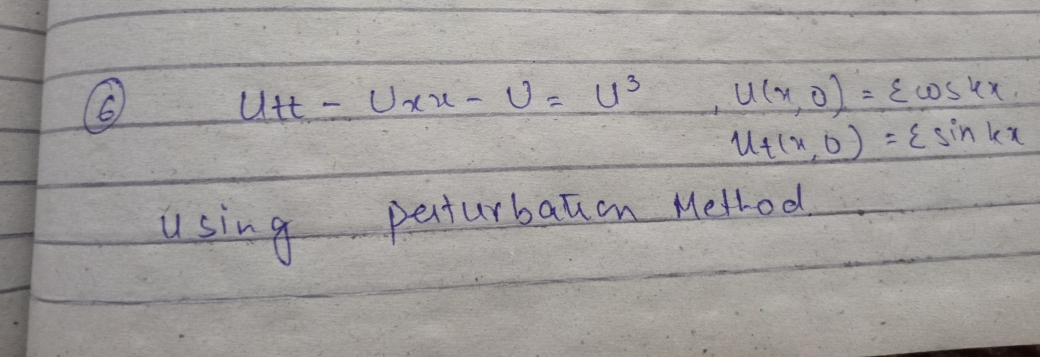 6 Utt - Uxx - U = U³ , U(x,0) = εcoskx.
Ut(x,0) = εsinkx
Using perturbation Method.